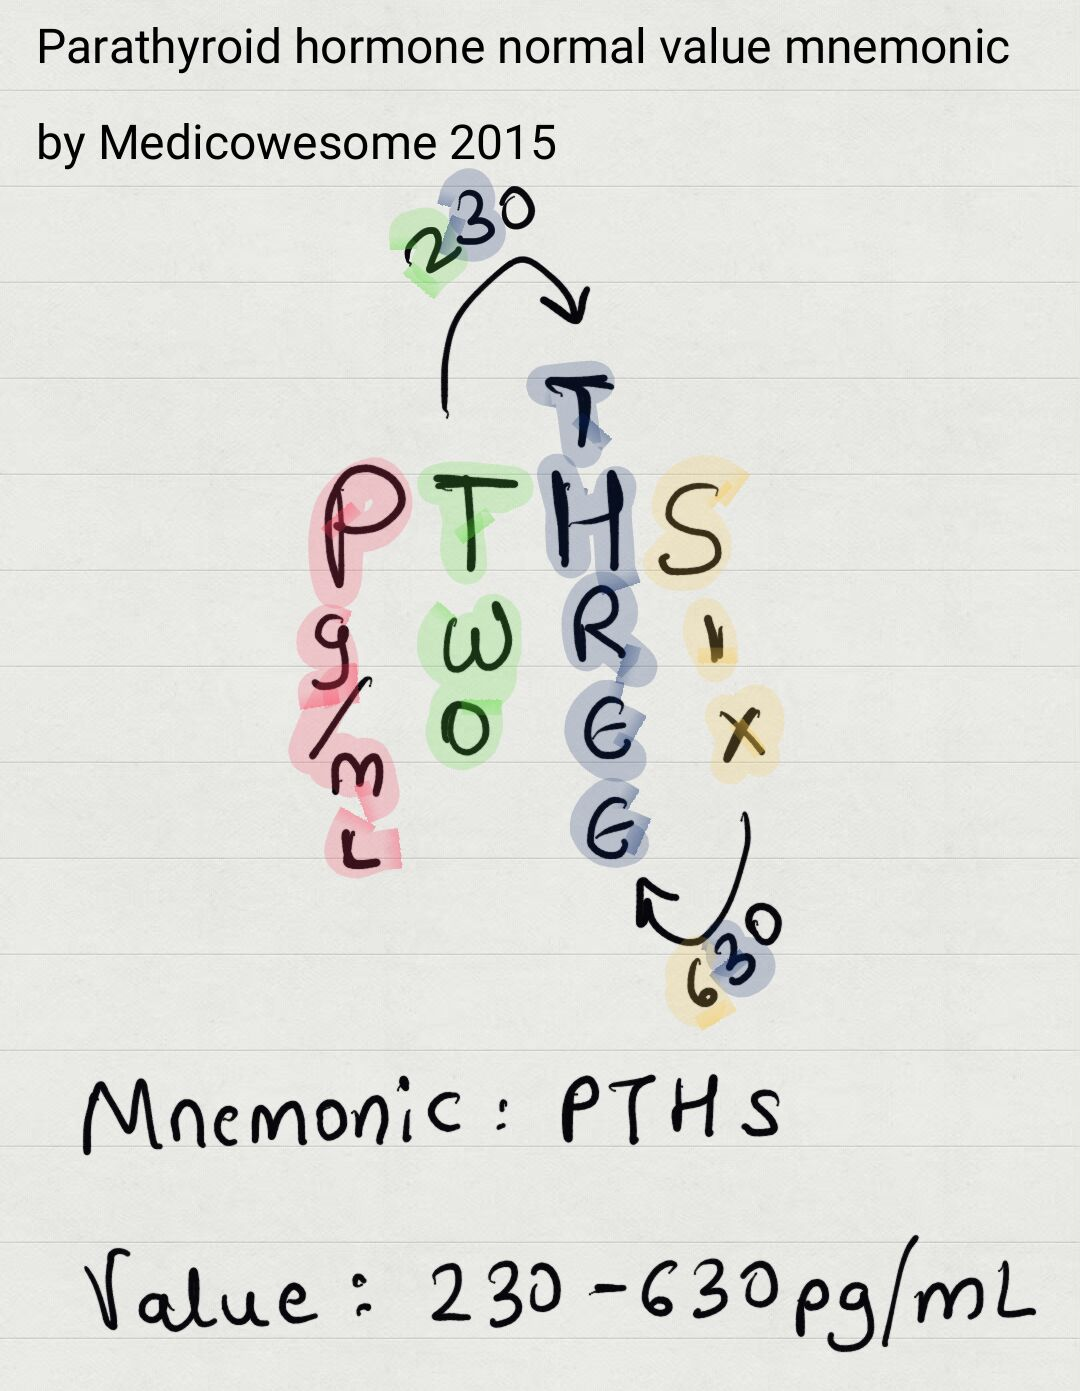 Parathyroid hormone normal value mnemonic
by Medicowesome 2015
230
T
P T H S
g w R i
/ o E x
m E
L
630
Mnemonic : PTHS
Value : 230 - 630 pg/mL